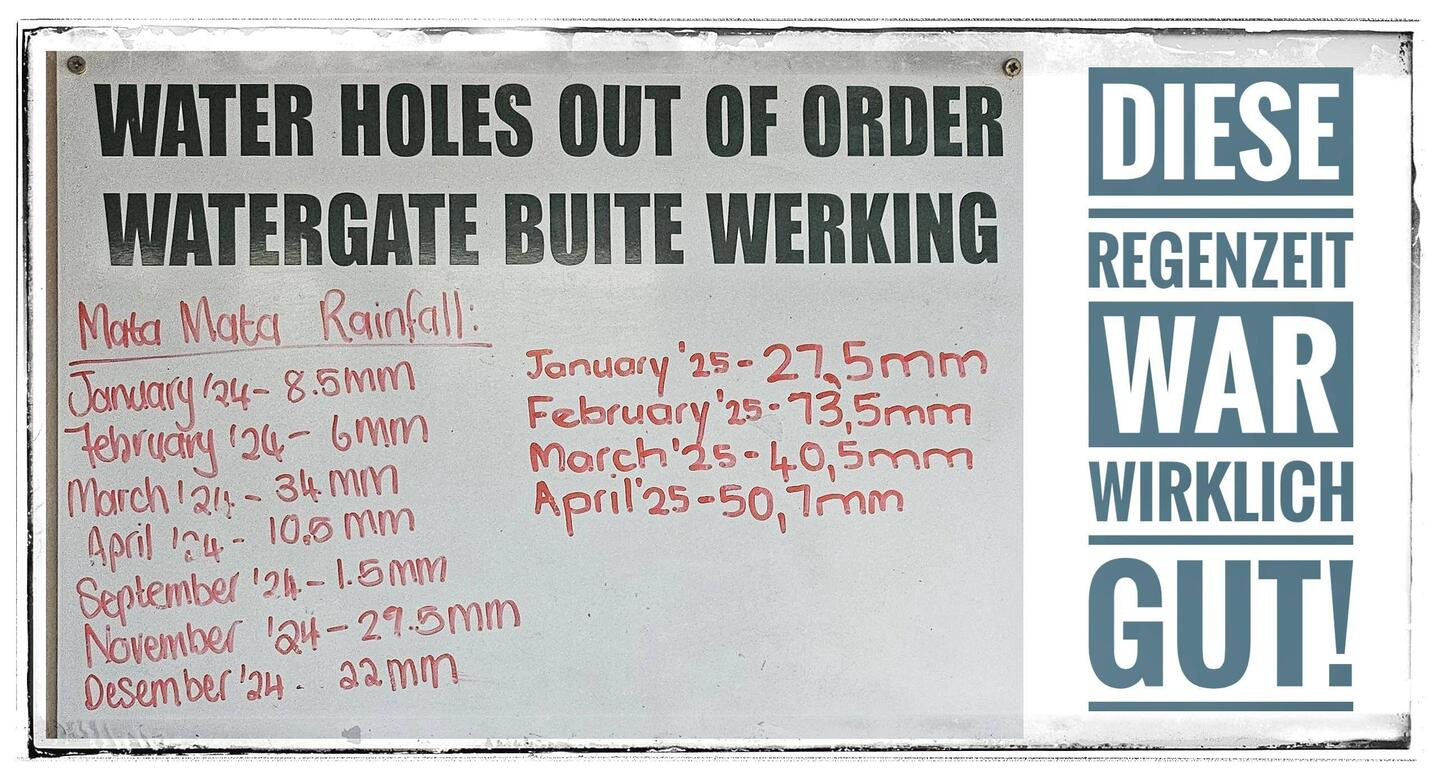 WATER HOLES OUT OF ORDER
WATERGATE BUITE WERKING
Mata Mata Rainfall:
January '24 - 8.5mm
February '24 - 6mm
March '24 - 34 mm
April '24 - 10.5 mm
September '24 - 1.5mm
November '24 - 29.5mm
Desember '24 - 22mm
January '25 - 27,5mm
February '25 - 73,5mm
March '25 - 40,5mm
April '25 - 50,7mm
DIESE
REGENZEIT
WAR
WIRKLICH
GUT!